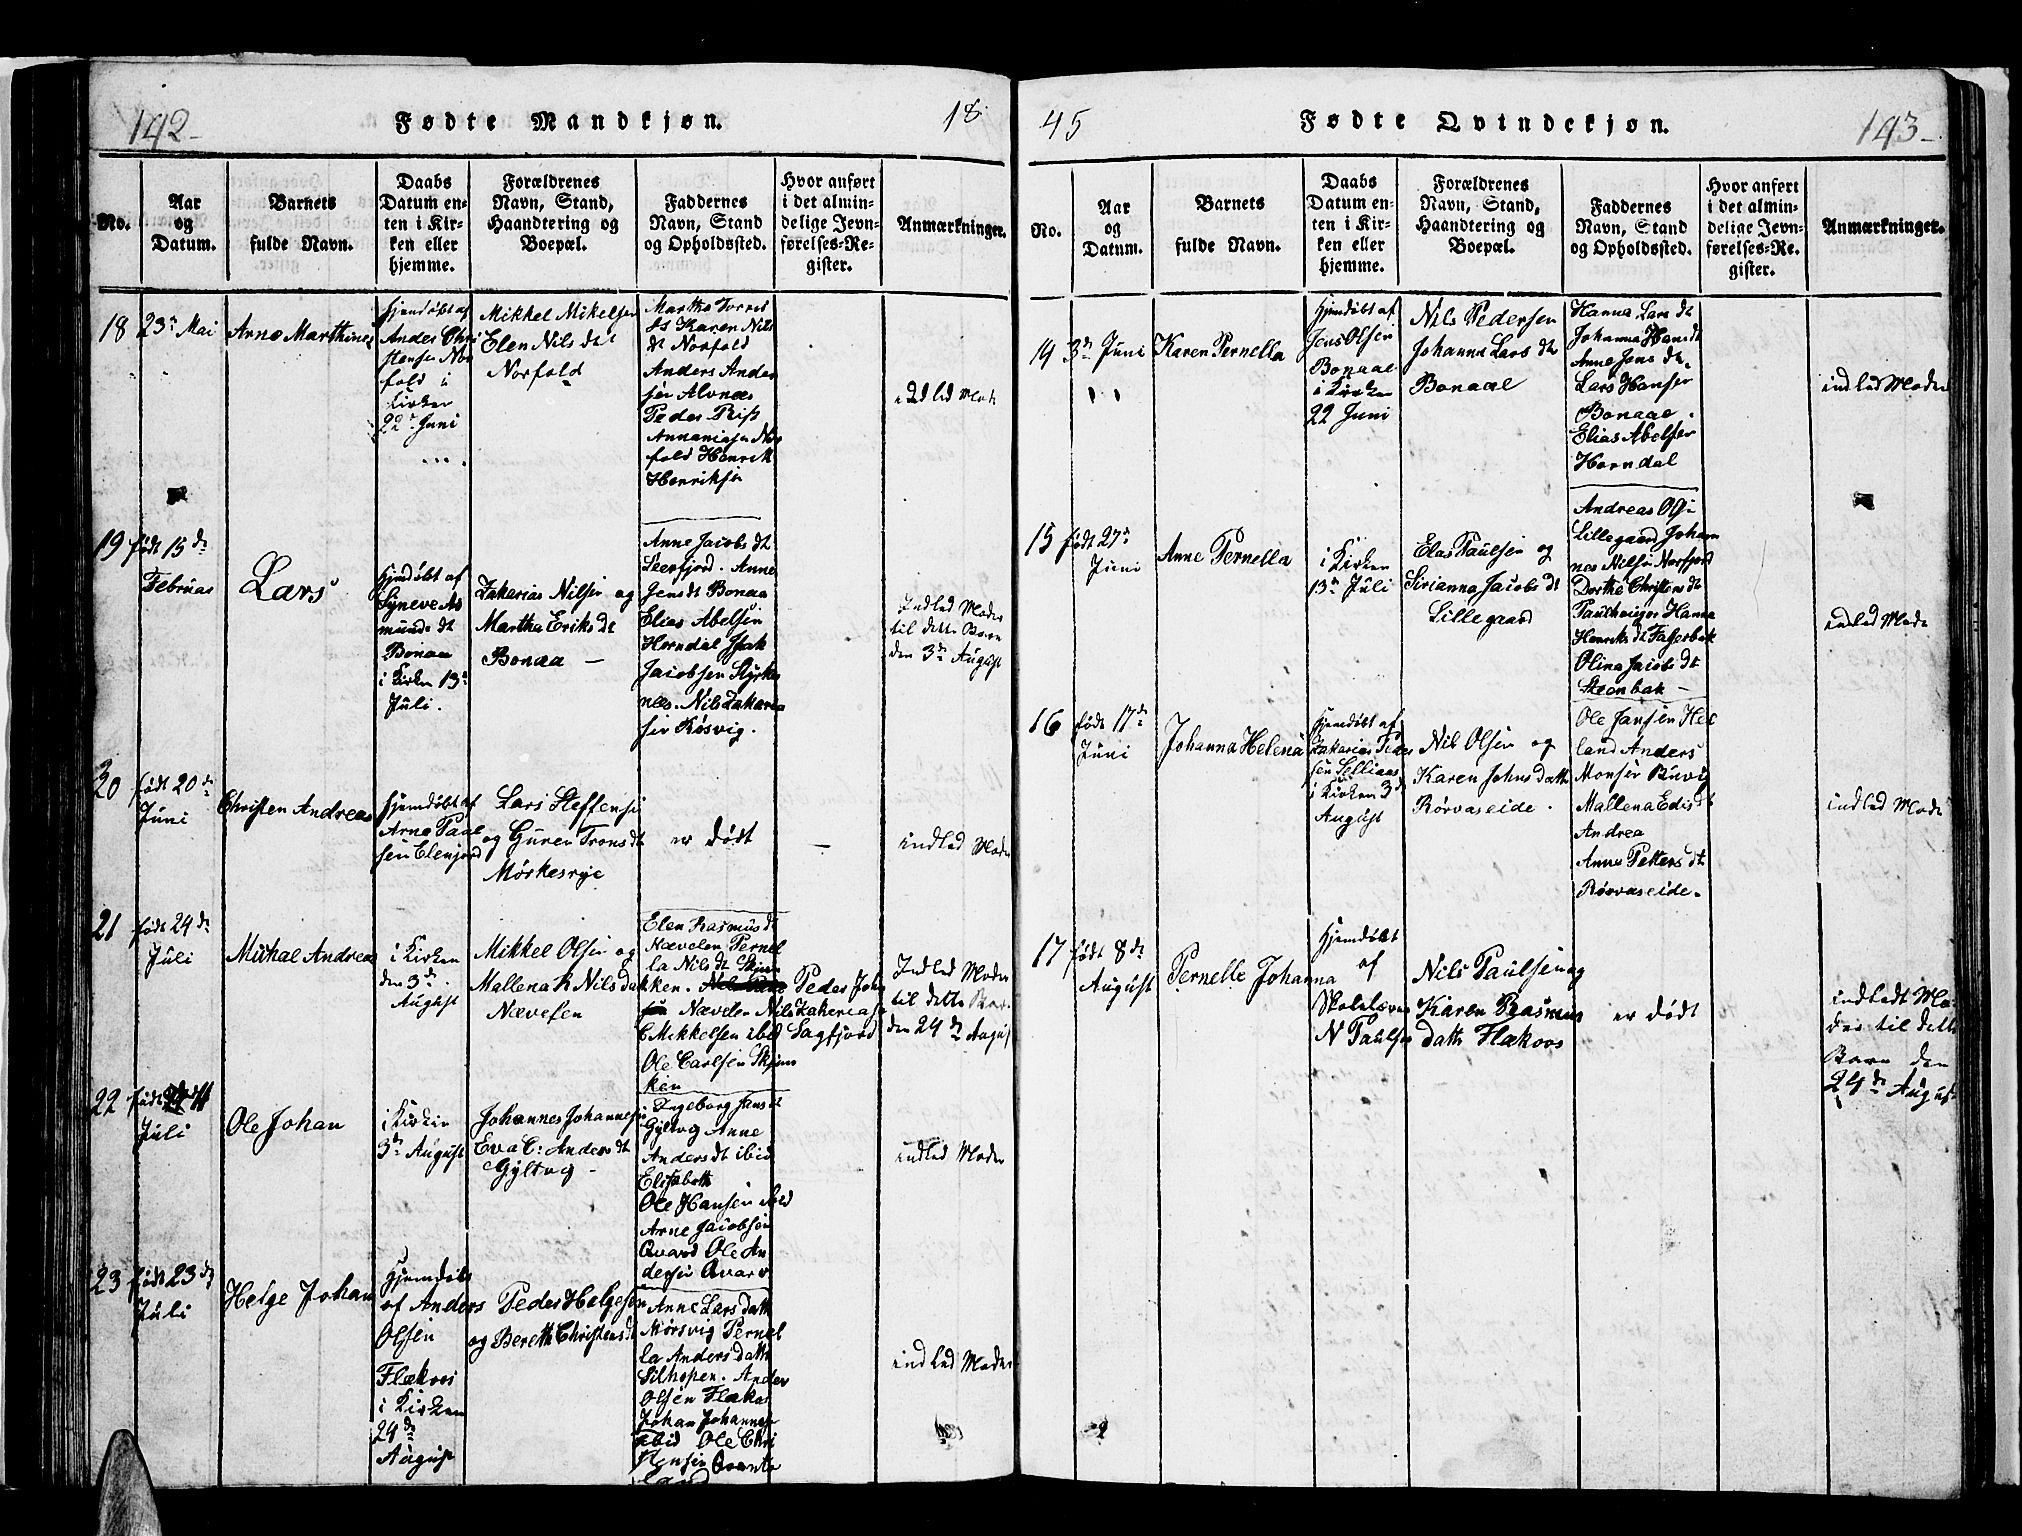 142
Fødte Mandkjøn.
18
No.
Aar
og
Datum.
Barnets
fulde Navn.
Daabs
Datum en-
ten i Kir-
ken eller
hjemme.
Forældrenes
Navn, Stand,
Haandtering og
Boepæl.
Faddernes
Navn, Stand
og Opholdssted.
Hvor anført
i det almin-
delige Jevn-
førelses-Re-
gister.
Anmærkninger.
18
23de Mai
Arne Marthines
hjemdøbt af
Andes Chri
stensen Nor
fold i
Kirken
22de Juni
Mikkel Mikelsen
Elen Nils dt
Norfold
Karen Nils
dt Norfold
Anders Ander
sen Alvnæs
Peder
fold Henrik
Henriksen
indled Mode
19
født 15de
Februar
Lars
hjemdøbt af
Syneve As
munds dt
Bonaa
i Kirken 13de
Juli.
Zakarias Nilsen og
Martha Eriks dt
Bonaa —
Anne Jacobs dt
Leerfjord. Anne
Jensdt Bonaa
Elias Abelsen
Horndal Isak
Jacobsen Styrkes
næs. Nils Zakaria
sen Røsvig.
Indled Moder
til dette Barn
den 3de August
20
født 20de
Juni
Christen Andreas
hjemdøbt af
Arne Paul
sen Elenjord
Lars Steffensen
og Guren Trons dt
Mørkesrye
er dødt
—
indled Moder
21
født 24de
Juli
Mikal Andreas
i Kirken
den 3de
August
Mikkel Olsen og
Mallena R Nils dat
Nævelsen
Elen Rasmus dt
Nævelen Pernel
la Nils dt Skjun
ken. Peder Joh
sen Nævelen Nils Zakeriasen
C Mikkelsen ibid Sagfjord
Ole Carlsen Skjun
ken
Indled Moder
til dette Barn
den 24de August
22
født 11
Juli
Ole Johan
i Kirken
3de August
Johannes Johannesen
Eva C: Anders dt
Gyltvg —
Ingeborg Jans dt
Gyltvg Anne
Anders dt ibid
Elisabeth
Ole Hansen
Arne Jacobsen
Qvarv Ole An
dersen Qvarv.
indled Moder
23
født 23de
Juli
Helge Johan
hjemdøbt
af Anders
Olsen
Flækoos
i Kirken
24de
August
Peder Helgesen
og Bereth Christens dt
Anne Lars dath
Mørsvig Pernel
la Anders dath
Silhopen. Anders
Olsen Flækos
Johan Johannes
ibid Ole Chri
stensen
indled Moder
45
Fødte Qvindekjøn.
143
No.
Aar
og
Datum.
Barnets
fulde Navn.
Daabs
Datum en-
ten i Kir-
ken eller
hjemme.
Forældrenes
Navn, Stand,
Haandtering og
Boepæl.
Faddernes
Navn, Stand
og Opholdssted.
Hvor anført
i det almin-
delige Jevn-
førelses-Re-
gister.
Anmærkninger.
14
3de Juni
Karen Pernella
hjemdøbt af
Jens Olsen
Bonaae
i Kirken
22 Juni
Nils Pedersen
Johanna Lars dt
Bonaae
Hanna Lars dt
Johanna Hans dt
Anne Jens dt
Lars Hansen
Bonaae.
Elias Abelsen
Horndal
indled Moder
15
født 27de
Juni
Anne Pernella
i Kirken
13de Juli
Elas Paulsen og
Sirianna Jacobs dt
Lillegaard
Andreas
Lillegaard Johan
nes Nilsen Norfjord
Dorthe Christens dt
Hanna
Henriks dt Fagerbak
Olina Jacobs dt
Steenbak —
indled Mode
16
født 17de
Juni
Johanna Helena
hjemdøbt af
Zakarias Peder
sen
i Kirken 3de
August
Nil Olsen og
Karen Johns dath
Rørvaseide.
Ole Jansen Hel
land Anders
Monsen Buvig
Mallena Edis dt
Andrea
Anne Petters dt
Rørvaseide.
indled Mode
17
født 8de
August
Pernelle Johanna
hjemdøbt
af
Skolelærer
N Paulsen
Nils Paulsen og
Karen Rasmus
dath Flækoos
er dødt
indledt Mo-
der til dette
Barn den
24de August